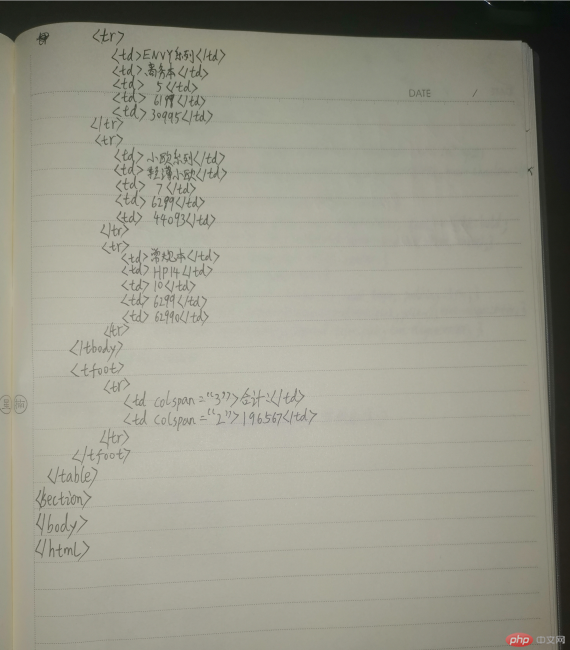 <tr>
<td>ENVY系列</td>
<td>商务本</td>
<td> 5</td>
<td> 6199</td>
<td> 30995</td>
</tr>
<tr>
<td>小欧系列</td>
<td>轻薄小欧</td>
<td> 7</td>
<td> 6299</td>
<td> 44093</td>
</tr>
<tr>
<td>常规本</td>
<td>HP14</td>
<td>10</td>
<td>6299</td>
<td>62990</td>
</tr>
</tbody>
<tfoot>
<tr>
<td colspan="3">合计:</td>
<td colspan="2">196567</td>
</tr>
</tfoot>
</table>
</section>
</body>
</html>
DATE /
php 中文网